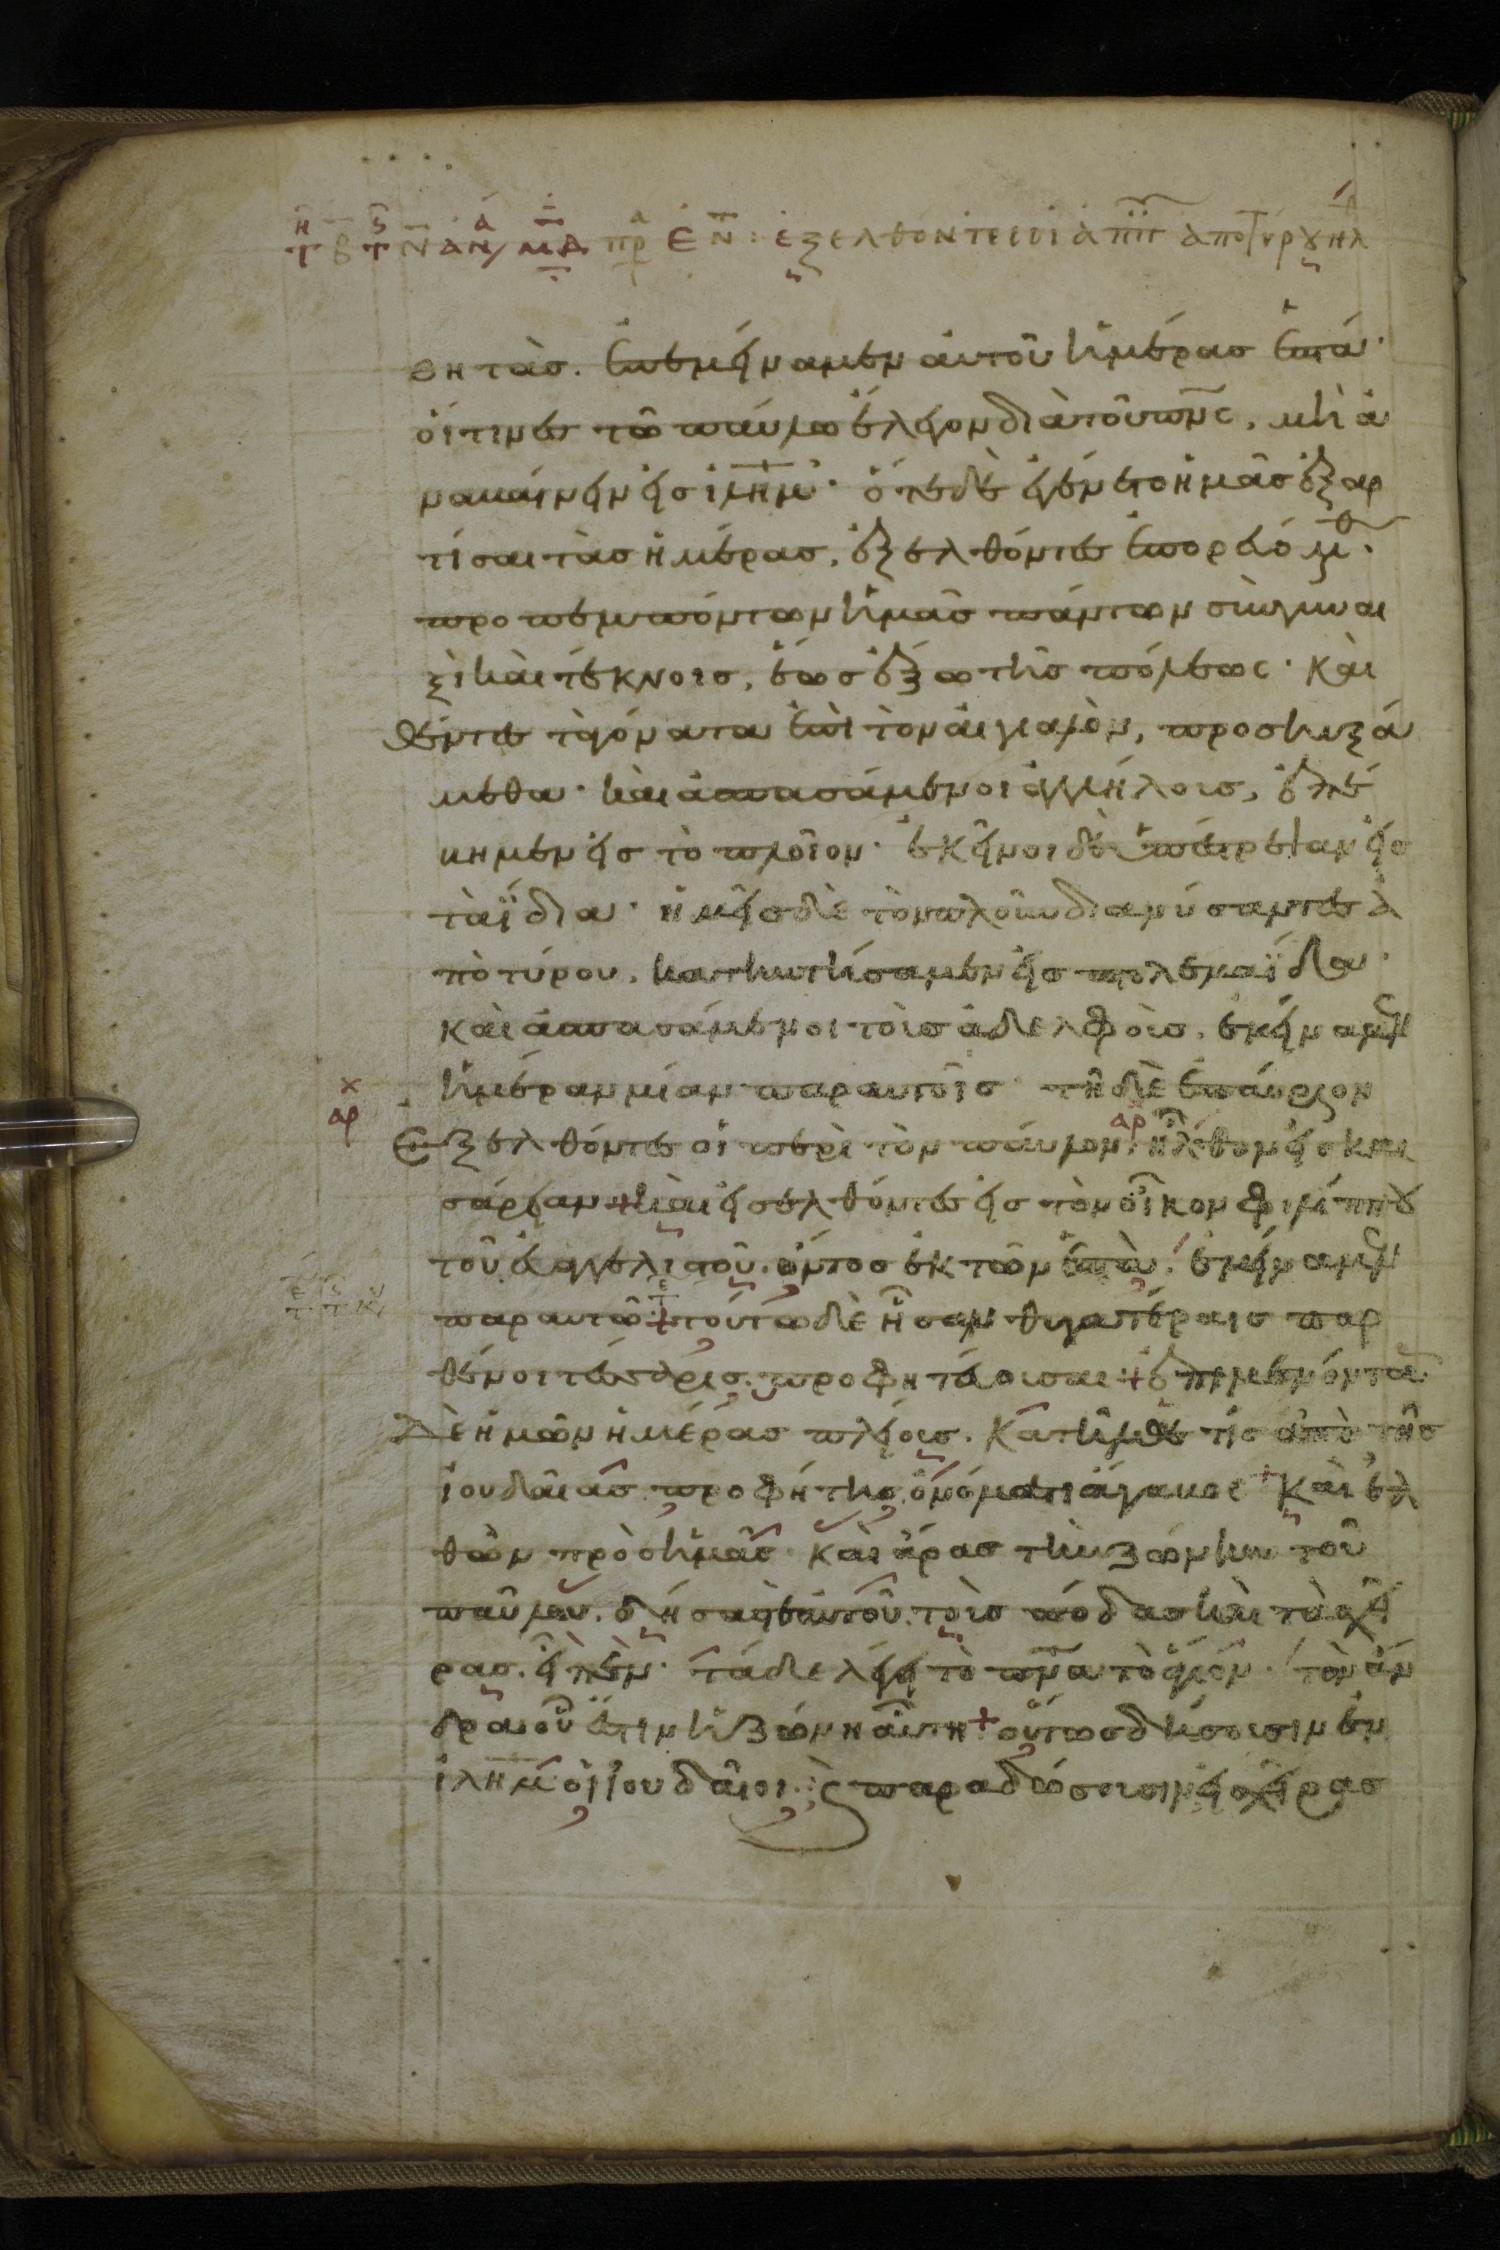 θητὰς. ἐπεμείναμεν αὐτοῦ ἡμέρας ἑπτά·
οἵτινες τῶ παύλω ἔλεγον διὰ τοῦ πν̅ς, μὴ ἀ
ναβαίνειν εἰς ἱλημ· ὅτε δὲ ἐγένετο ἡμᾶς ἐξαρ
τίσαι τὰς ἡμέρας, ἐξελθόντες ἐπορευόμεθ·
προπεμπόντων ἡμᾶς πάντων σὺν γυναι
ξὶ καὶ τέκνοις, ἕως ἔξω τῆς πόλεως· καὶ
θέντες τὰ γόνατα ἐπὶ τὸν αἰγιαλὸν, προσηυξά
μεθα· καὶ ἀσπασάμενοι ἀλλήλοις, ἐπέ
βημεν εἰς τὸ πλοῖον· ἐκεῖνοι δὲ ὑπέστρεψαν εἰς
τὰ ἴδια· ἡμεῖς δὲ τὸν πλοῦν διανύσαντες ἀ
πὸ τύρου, κατηντήσαμεν εἰς πτολεμαΐδα·
καὶ ἀσπασάμενοι τοὺς ἀδελφοὺς, ἐμείναμεν
ἡμέραν μίαν παρ αυτοῖς τῆ δὲ ἐπάυριον
ἐξελθόντες οἱ περὶ τὸν παύλον, ἤλθομεν εἰς και
σάρειαν + καὶ εἰσελθόντες εἰς τὸν οἶκον φιλίππου
τοῦ εὐαγγελιστοῦ, ὄντος ἐκ τῶν ἑπτὰ, ἐμείναμεν
παρ αυτῶ + τούτω δὲ ἦσαν θυγατέραις παρ
θένοι τέσσαρεις προφητεύουσαι + ἐπιμενόντων
δὲ ἡμῶν ἡμέρας πλείους. κατῆλθε τίς ἀπὸ τῆς
ἰουδαίας προφήτης ὀνόματι ἄγαβος + καὶ ἐλ
θὼν πρὸς ἡμᾶς καὶ ἄρας τὴν ζώνην τοῦ
παύλου, δήσας τε αὐτοῦ τοὺς πόδας καὶ τὰς χεῖ
ρας, εἶπεν· τάδε λέγει τὸ πν̅α τὸ ἅγιον· τὸν ἄν
δρα οὗ ἐστιν ἡ ζώνη αὕτη + οὕτως δήσουσιν ἐν
ἱλημ οἱ ἰουδαῖοι. ς παραδώσουσιν εἰς χεῖρας